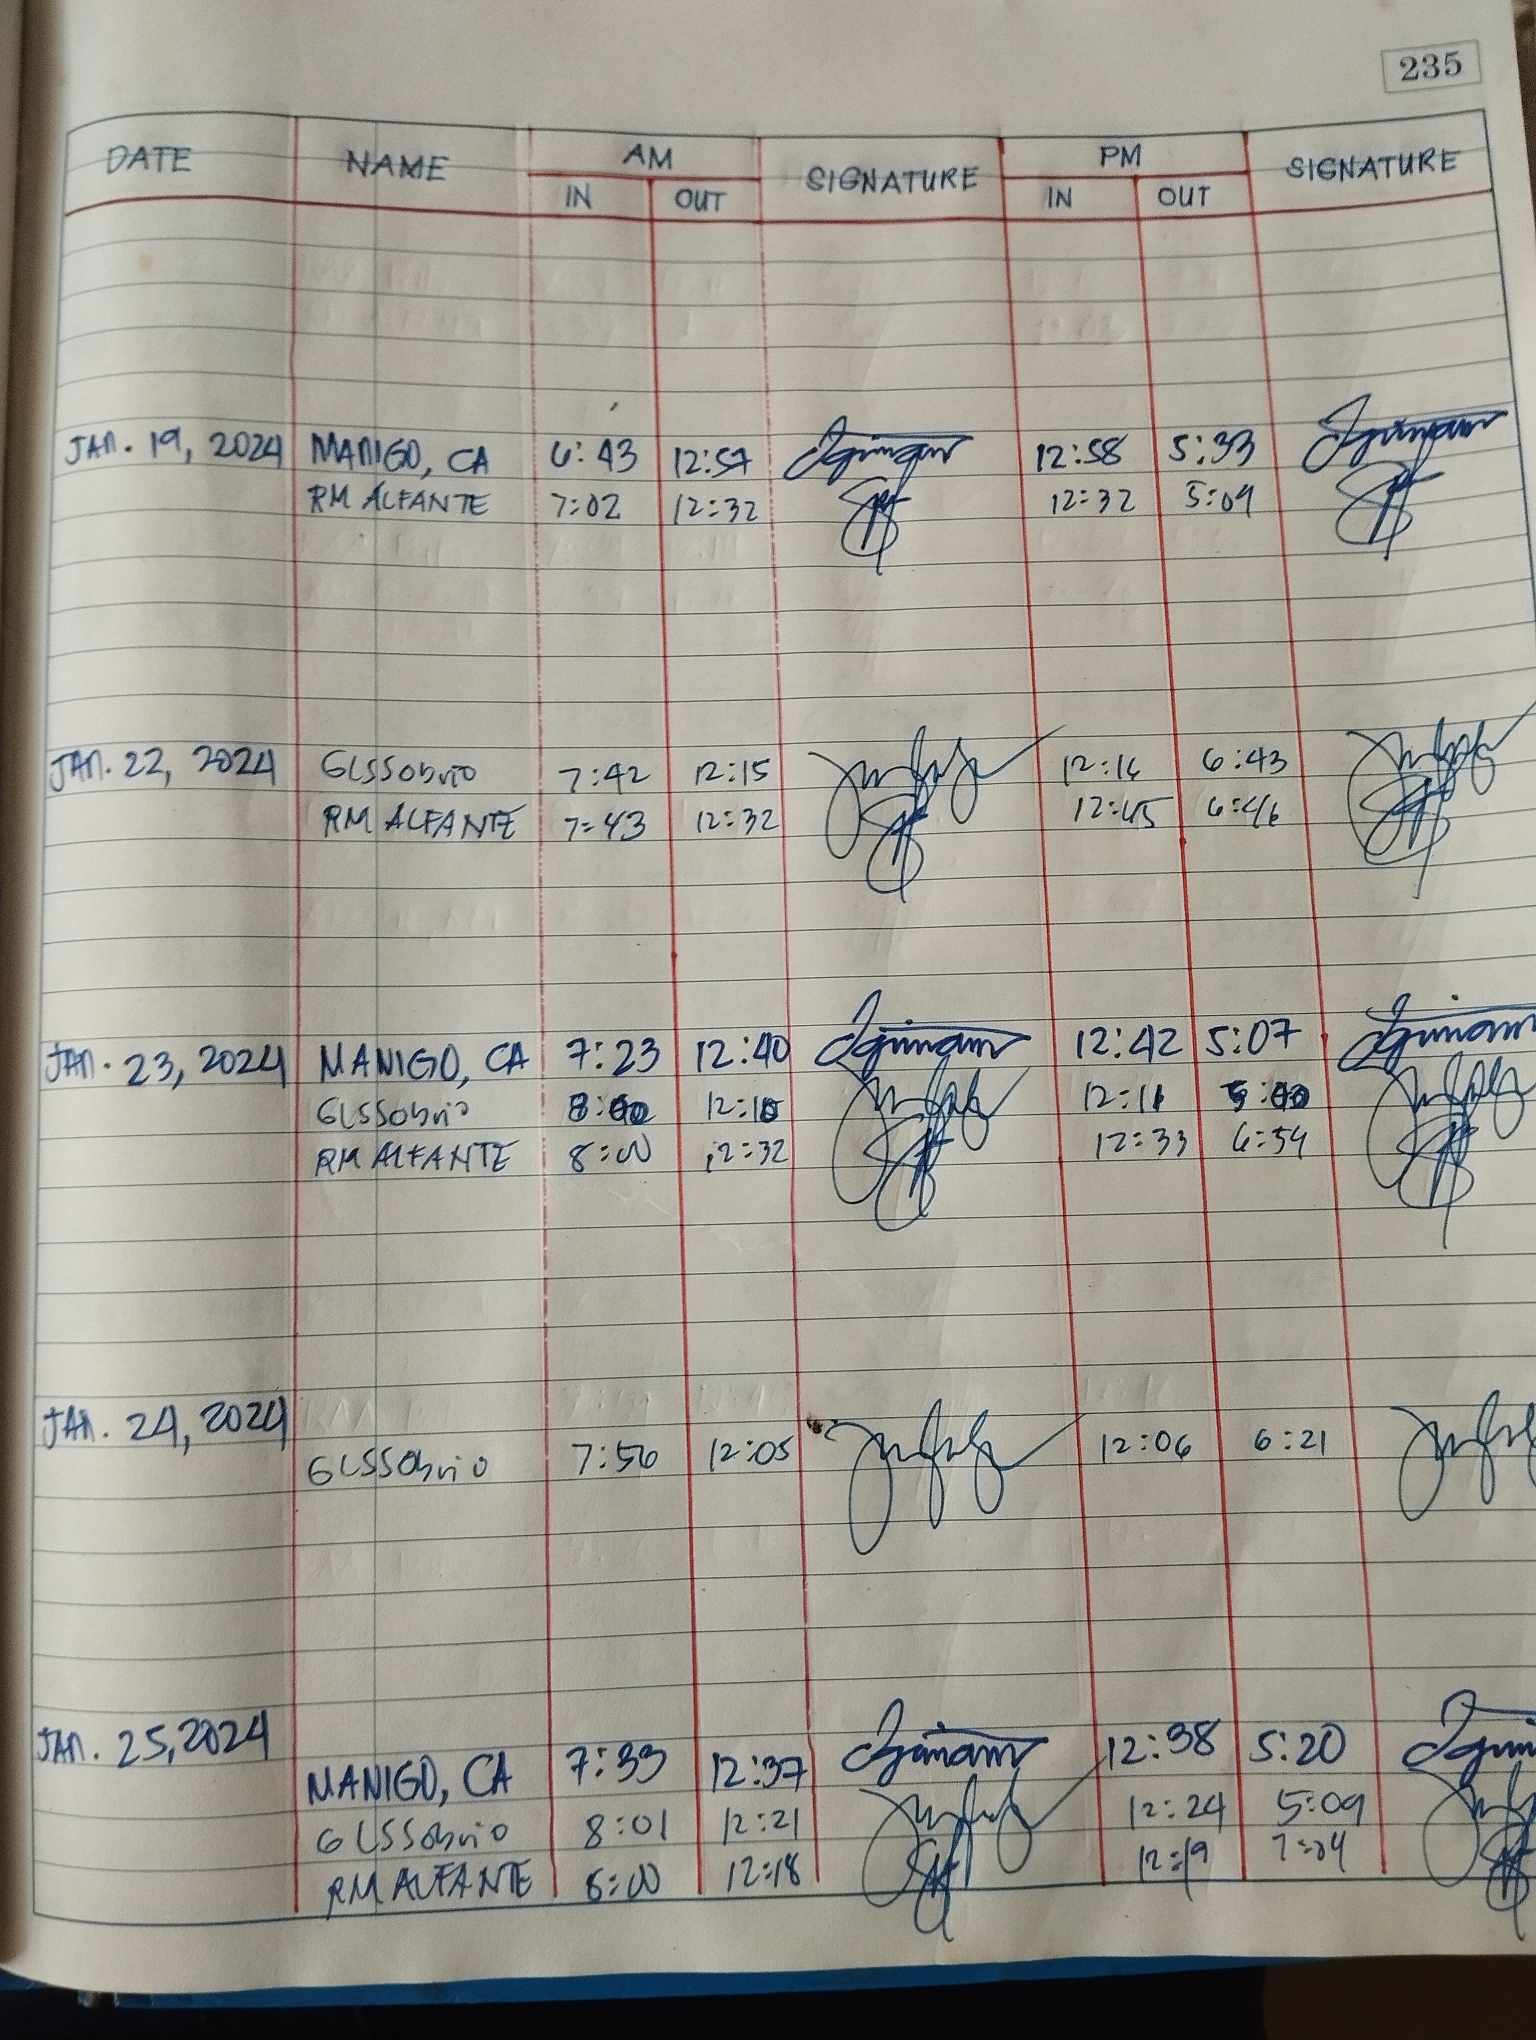 235
DATE NAME AM SIGNATURE PM SIGNATURE
IN OUT IN OUT
JAN. 19, 2024 MANIGO, CA 6:43 12:57 12:58 5:33
RM ALFANTE 7:02 12:32 12:32 5:09
JAN. 22, 2024 GLSSobrio 7:42 12:15 12:16 6:43
RM ALFANTE 7:43 12:32 12:45 6:46
JAN. 23, 2024 MANIGO, CA 7:23 12:40 12:42 5:07
GLSSobrio 12:10 12:11
RM ALFANTE 8:00 12:32 12:33 6:54
JAN. 24, 2024
GLSSobrio 7:56 12:05 12:06 6:21
JAN. 25, 2024
MANIGO, CA 7:33 12:37 12:38 5:20
GLSSobrio 8:01 12:21 12:24 5:09
RM ALFANTE 8:00 12:18 12:19 7:04